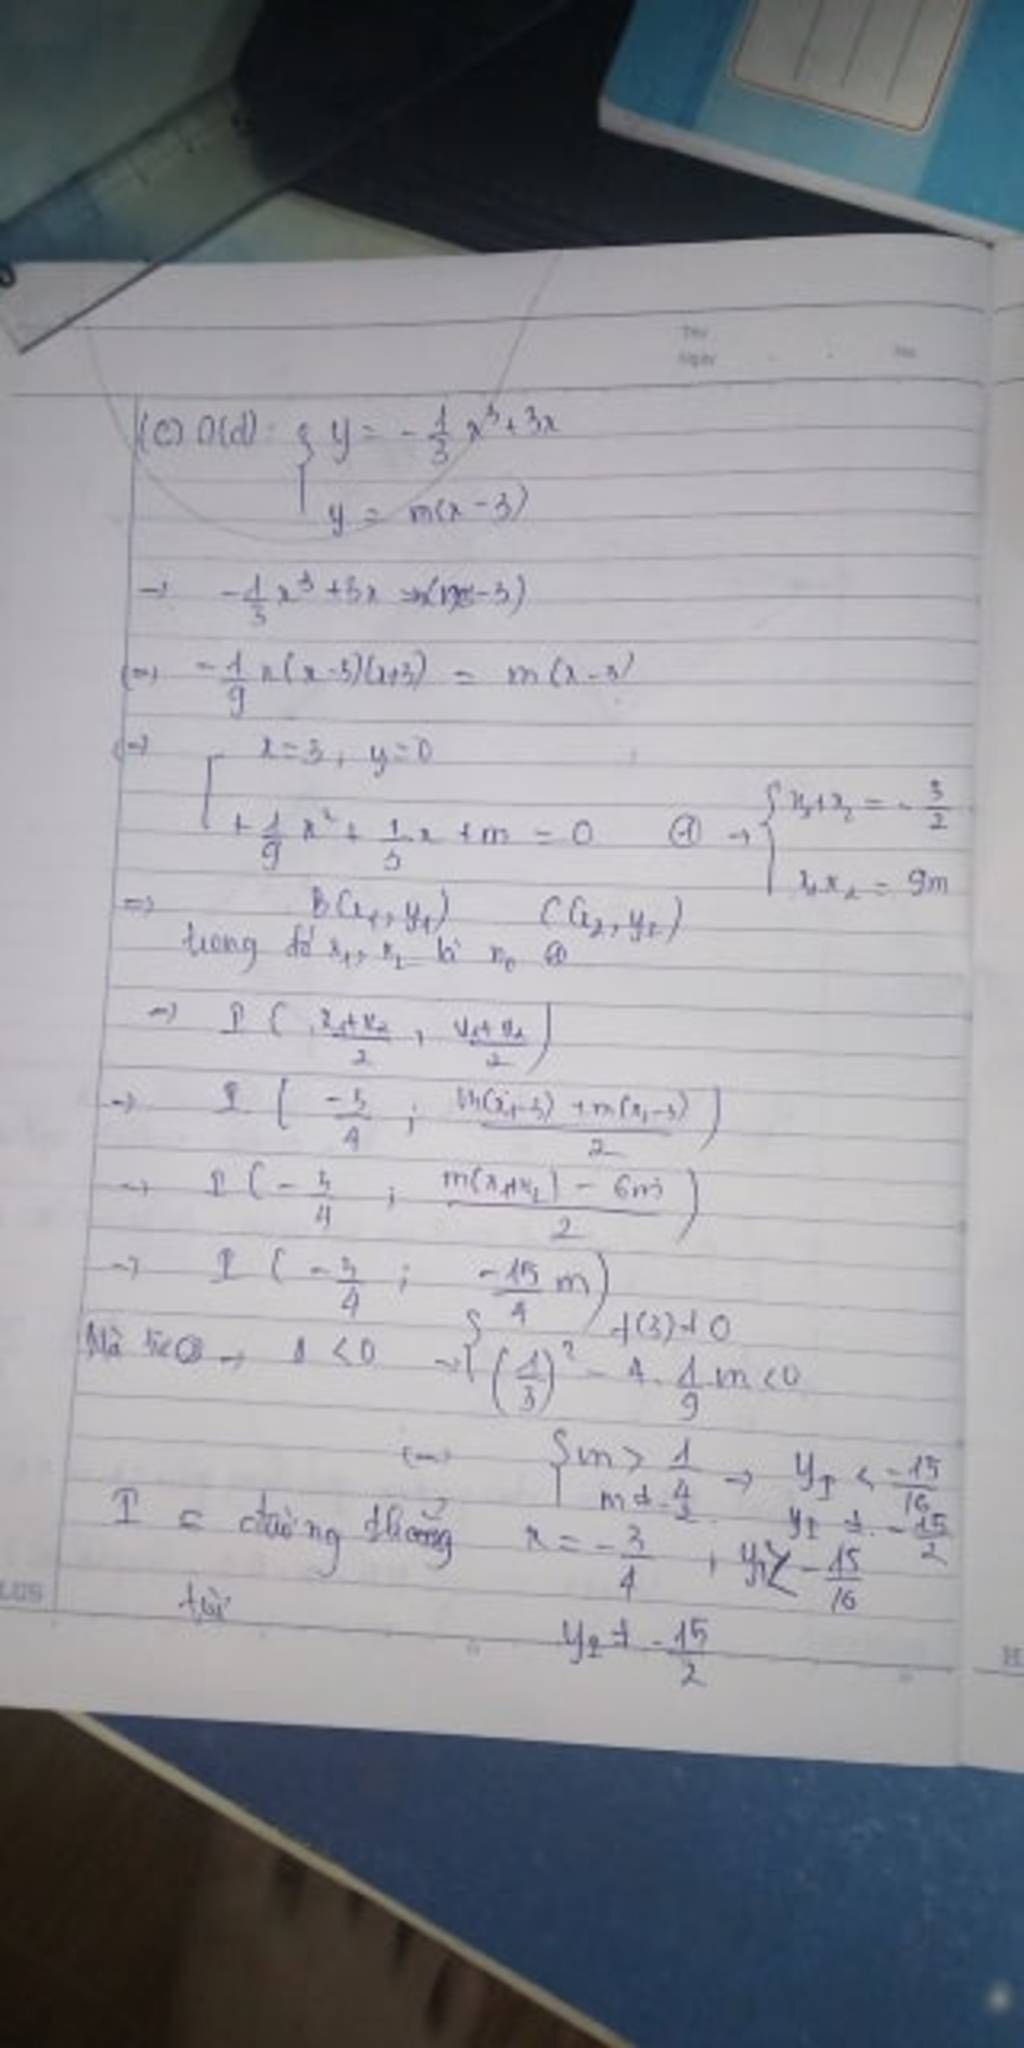 (C) ∩ (d): { y = -1/3 x³ + 3x
y = m(x - 3)
→ -1/3 x³ + 3x = m(x - 3)
(=) -1/9 x(x - 3)(x+3) = m(x - 3)
(=) [ x = 3, y = 0
+ 1/9 x² + 1/3 x + m = 0 ① → { x₁+x₂ = -3/2
x₁x₂ = 9m
=) B(x₁, y₁) C(x₂, y₂)
trong đó x₁, x₂ là n₀ ①
=) I ( (x₁+x₂)/2 , (y₁+y₂)/2 )
→ I ( -3/4 ; (m(x₁-3) + m(x₂-3))/2 )
→ I ( -3/4 ; (m(x₁+x₂) - 6m)/2 )
→ I ( -3/4 ; -15/4 m )
Δ < 0 → { f(3) ≠ 0
(1/3)² - 4 . 1/9 m < 0
(=) { m > 1/4 → y_I < -15/16
m ≠ y_I ≠ -15/2
I ⊂ đường thẳng x = -3/4 , y_I < -15/16
trừ y_I ≠ -15/2